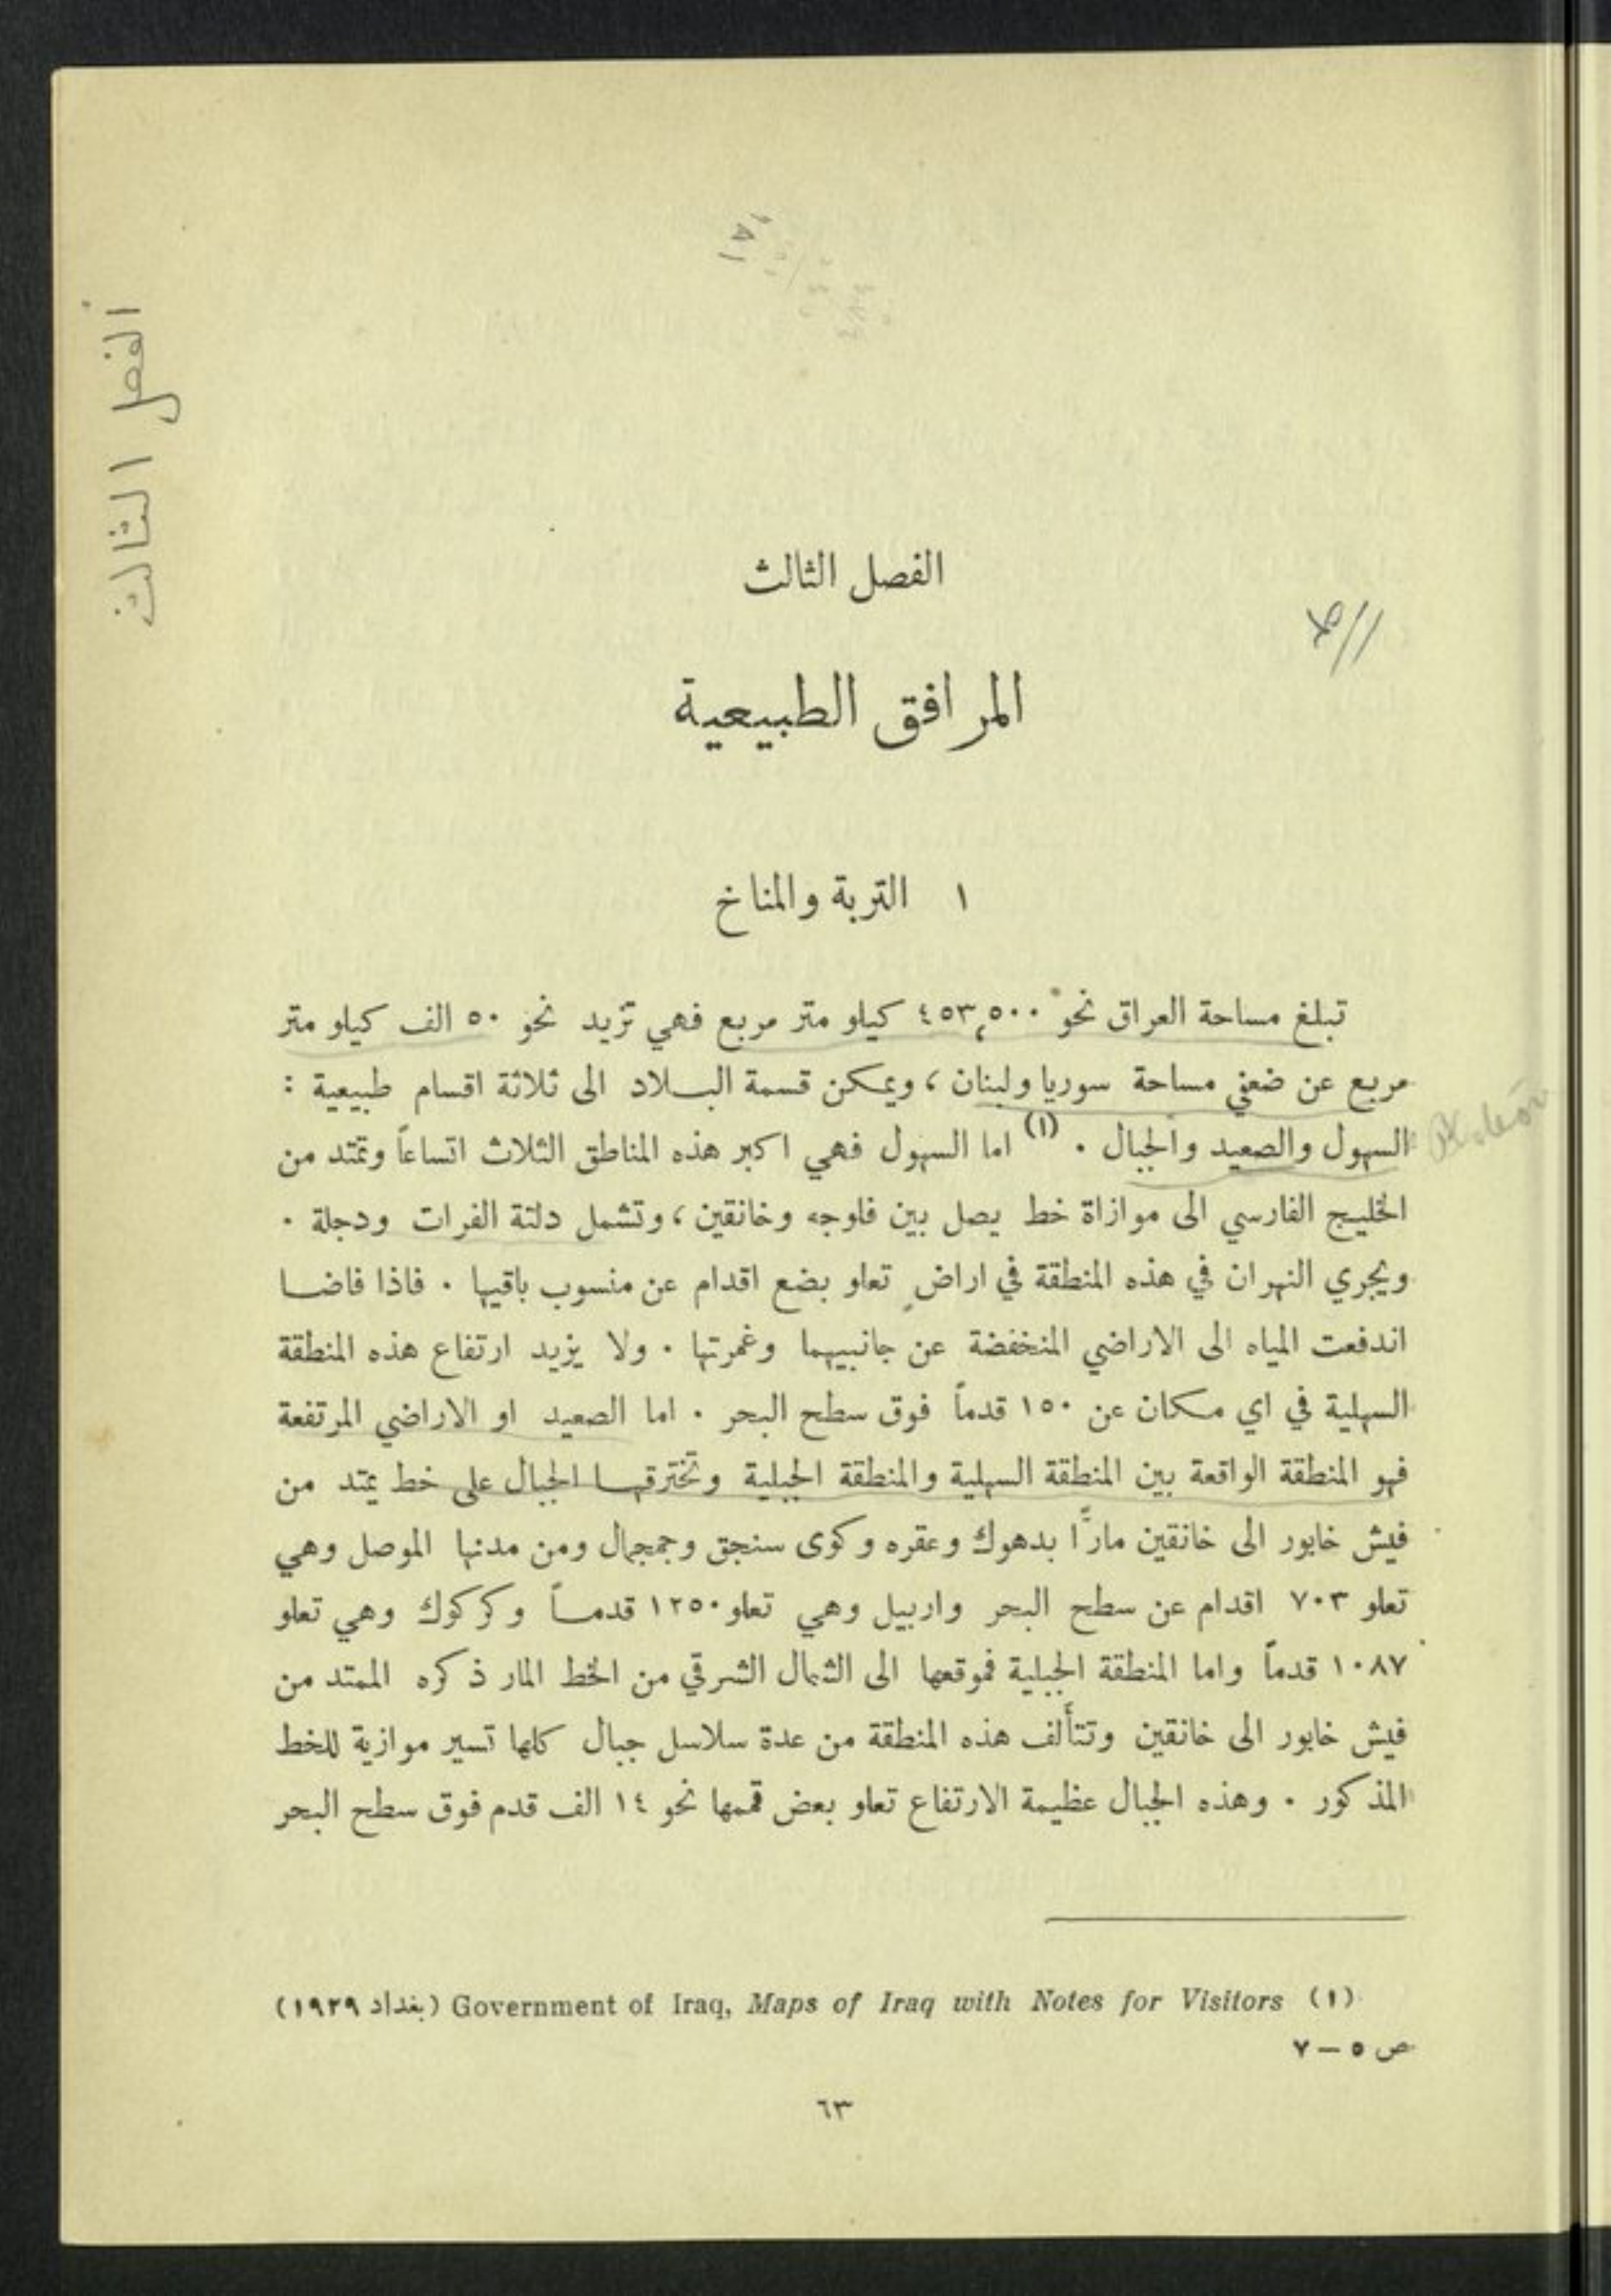 الفصل الثالث
الفصل الثالث
المرافق الطبيعية
١ التربة والمناخ
تبلغ مساحة العراق نحو ٤٥٣,٥٠٠ كيلو متر مربع فهي تزيد نحو ٥٠ الف كيلو متر
مربع عن ضعفي مساحة سوريا ولبنان ، ويمكن قسمة البلاد الى ثلاثة اقسام طبيعية :
السهول والصعيد والجبال . (١) اما السهول فهي اكبر هذه المناطق الثلاث اتساعاً وتمتد من
الخليج الفارسي الى موازاة خط يصل بين فلوجه وخانقين ، وتشمل دلتة الفرات ودجلة .
ويجري النهران في هذه المنطقة في اراضٍ تعلو بضع اقدام عن منسوب باقيها . فاذا فاضا
اندفعت المياه الى الاراضي المنخفضة عن جانبيهما وغمرتها . ولا يزيد ارتفاع هذه المنطقة
السهلية في اي مكان عن ١٥٠ قدماً فوق سطح البحر . اما الصعيد او الاراضي المرتفعة
فهو المنطقة الواقعة بين المنطقة السهلية والمنطقة الجبلية وتخترقها الجبال على خط يمتد من
فيش خابور الى خانقين مارًّا بدهوك وعقره وكوى سنجق وجمجمال ومن مدنها الموصل وهي
تعلو ٧٠٣ اقدام عن سطح البحر واربيل وهي تعلو ١٢٥٠ قدماً وكركوك وهي تعلو
١٠٨٧ قدماً واما المنطقة الجبلية فموقعها الى الشمال الشرقي من الخط المار ذكره الممتد من
فيش خابور الى خانقين وتتألف هذه المنطقة من عدة سلاسل جبال كلها تسير موازية للخط
المذكور . وهذه الجبال عظيمة الارتفاع تعلو بعض قممها نحو ١٤ الف قدم فوق سطح البحر
(١) Government of Iraq, Maps of Iraq with Notes for Visitors (بغداد ١٩٢٩)
ص ٥ – ٧
٦٣